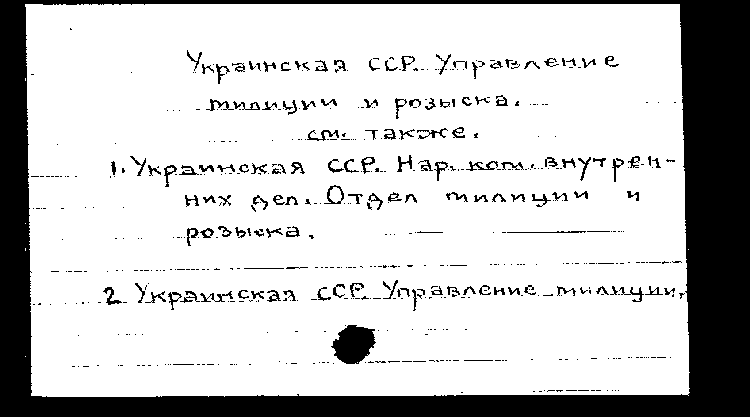 Украинская ССР. Управление
милиции и розыска.
см. также.
1. Украинская ССР. Нар. ком. внутрен-
них дел. Отдел милиции и
розыска.
2 Украинская ССР. Управление милиции.